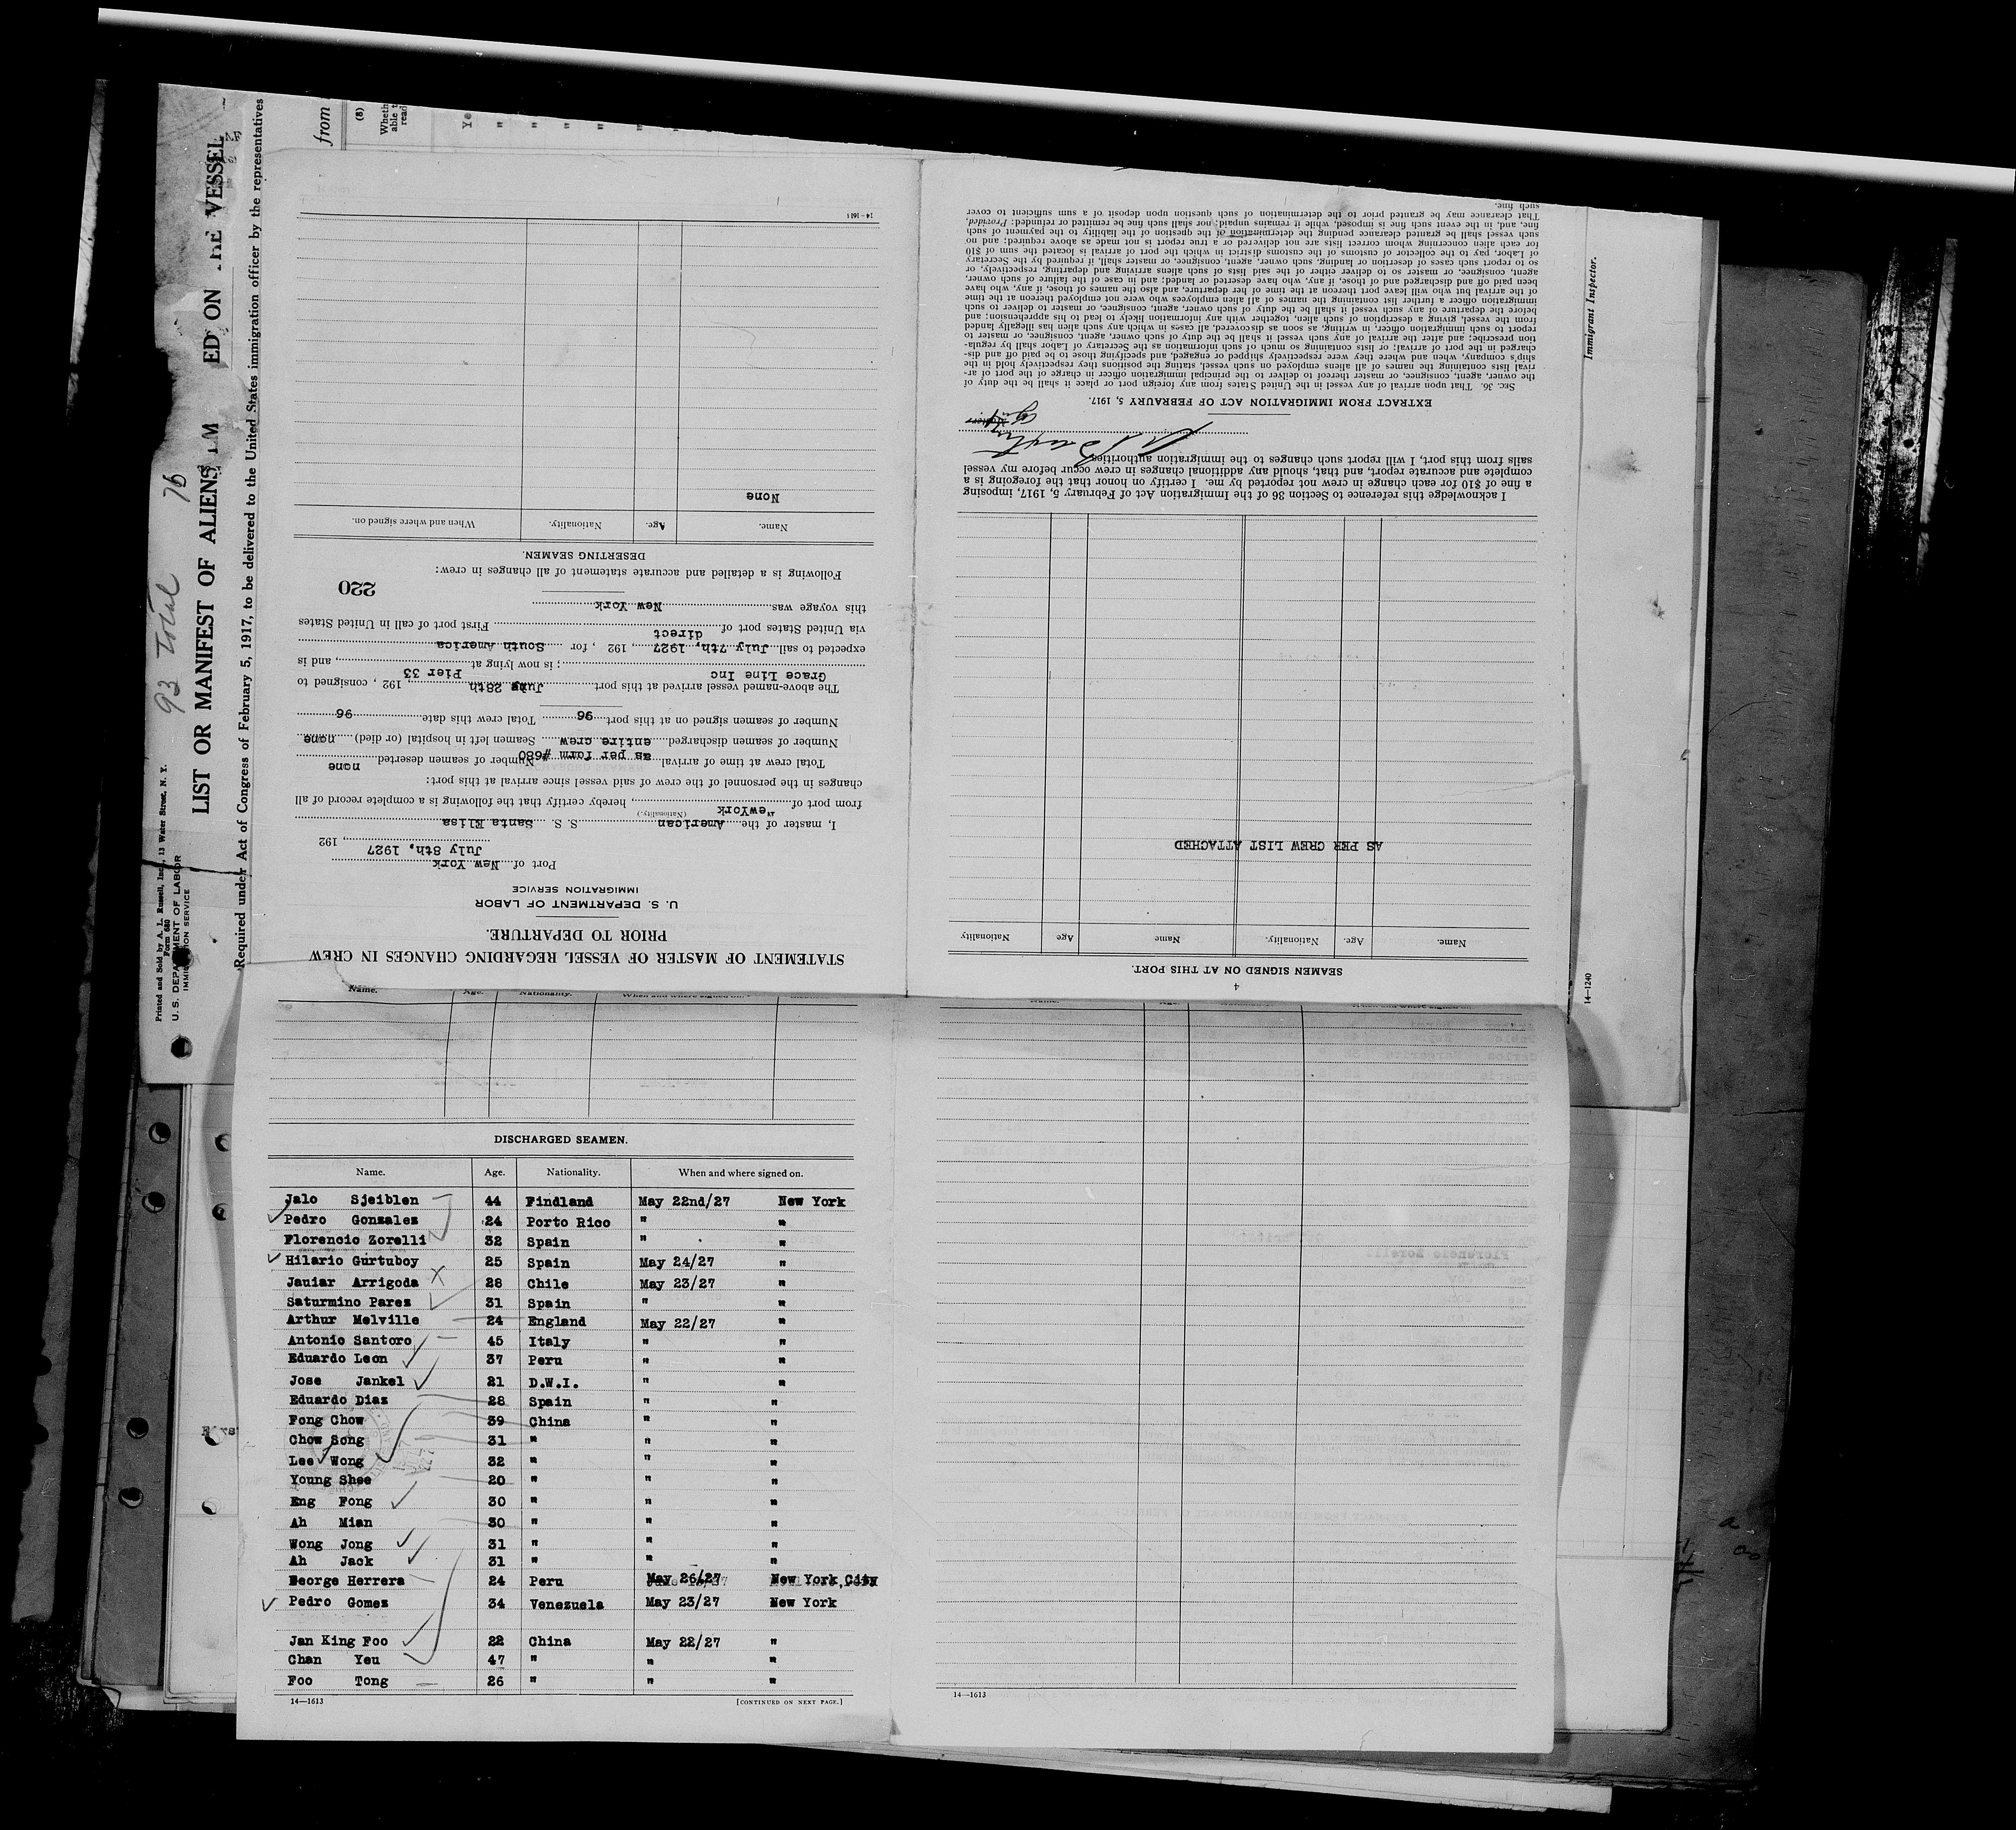 93 Total 76
Printed and Sold by A. I. Russell, Inc., 13 Water Street, N. Y.
Form 680
U. S. DEPARTMENT OF LABOR
IMMIGRATION SERVICE
LIST OR MANIFEST OF ALIENS EM ED ON THE VESSEL
Required under Act of Congress of February 5, 1917, to be delivered to the United States immigration officer by the representatives
from
(8)
Immigrant Inspector.
14—1240
STATEMENT OF MASTER OF VESSEL REGARDING CHANGES IN CREW
PRIOR TO DEPARTURE.
U. S. DEPARTMENT OF LABOR
IMMIGRATION SERVICE
Port of New York
July 8th, 1927, 192
I, master of the American S. S. Santa Elisa
(Nationality.)
from port of NewYork, hereby certify that the following is a complete record of all
changes in the personnel of the crew of said vessel since arrival at this port:
Total crew at time of arrival as per form #680 Number of seamen deserted none
Number of seamen discharged entire crew Seamen left in hospital (or died) none
Number of seamen signed on at this port 96 Total crew this date 96
The above-named vessel arrived at this port 28th, 192 , consigned to
Grace Line Inc ; is now lying at Pier 33, and is
expected to sail July 7th, 1927, 192 , for South America
via United States port of direct First port of call in United States
this voyage was New York
220
Following is a detailed and accurate statement of all changes in crew:
DESERTING SEAMEN.
Name. Age. Nationality. When and where signed on.
None
14-1614
4
SEAMEN SIGNED ON AT THIS PORT.
Name. Age. Nationality. Name Age Nationality
AS PER CREW LIST ATTACHED
I acknowledge this reference to Section 36 of the Immigration Act of February 5, 1917, imposing
a fine of $10 for each change in crew not reported by me. I certify on honor that the foregoing is a
complete and accurate report, and that, should any additional changes in crew occur before my vessel
sails from this port, I will report such changes to the immigration authorities.
EXTRACT FROM IMMIGRATION ACT OF FEBRAURY 5, 1917.
SEC. 36. That upon arrival of any vessel in the United States from any foreign port or place it shall be the duty of
the owner, agent, consignee, or master thereof to deliver to the principal immigration officer in charge of the port of ar-
rival lists containing the names of all aliens employed on such vessel, stating the positions they respectively hold in the
ship's company, when and where they were respectively shipped or engaged, and specifying those to be paid off and dis-
charged in the port of arrival; or lists containing so much of such information as the Secretary of Labor shall by regula-
tion prescribe; and after the arrival of any such vessel it shall be the duty of such owner, agent, consignee, or master to
report to such immigration officer, in writing, as soon as discovered, all cases in which any such alien has illegally landed
from the vessel, giving a description of such alien, together with any information likely to lead to his apprehension; and
before the departure of any such vessel it shall be the duty of such owner, agent, consignee, or master to deliver to such
immigration officer a further list containing the names of all alien employees who were not employed thereon at the time
of the arrival but who will leave port thereon at the time of her departure, and also the names of those, if any, who have
been paid off and discharged and of those, if any, who have deserted or landed; and in case of the failure of such owner,
agent, consignee, or master so to deliver either of the said lists of such aliens arriving and departing, respectively, or
so to report such cases of desertion or landing, such owner, agent, consignee, or master shall, if required by the Secretary
of Labor, pay to the collector of customs of the customs district in which the port of arrival is located the sum of $10
for each alien concerning whom correct lists are not delivered or a true report is not made as above required; and no
such vessel shall be granted clearance pending the determination of the question of the liability to the payment of such
fine, and, in the event such fine is imposed, while it remains unpaid; nor shall such fine be remitted or refunded: Provided,
That clearance may be granted prior to the determination of such question upon deposit of a sum sufficient to cover
such fine.
Name. Age. Nationality. When and where signed on.
DISCHARGED SEAMEN.
Name. Age. Nationality. When and where signed on.
Jalo Sjeiblen 44 Findland May 22nd/27 New York
Pedro Gonzales 24 Porto Rico " "
Florencio Zorelli 32 Spain " "
Hilario Gurtuboy 25 Spain May 24/27 "
Jauiar Arrigoda 28 Chile May 23/27 "
Saturmino Parez 31 Spain " "
Arthur Melville 24 England May 22/27 "
Antonio Santoro 45 Italy " "
Eduardo Leon 37 Peru " "
Jose Jankel 21 D.W.I. " "
Eduardo Diaz 28 Spain " "
Fong Chow 39 China " "
Chow Song 31 " " "
Lee Wong 32 " " "
Young Shee 20 " " "
Eng Fong 30 " " "
Ah Mian 30 " " "
Wong Jong 31 " " "
Ah Jack 31 " " "
George Herrera 24 Peru May 26/27 New York City
Pedro Gomez 34 Venezuela May 23/27 New York
Jan King Foo 22 China May 22/27 "
Chan Yeu 47 " " "
Foo Tong 26 " " "
14—1613 [CONTINUED ON NEXT PAGE.]
14—1613